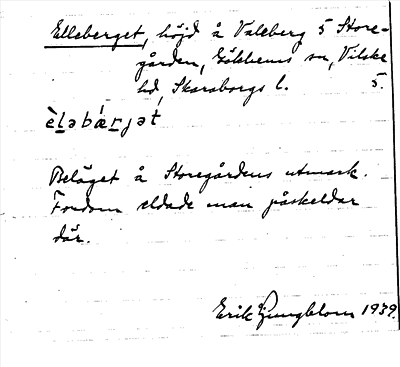 Elleberget, höjd å Valeberg 5 Store-
gården, Gökhems sn, Vilske
hd, Skaraborgs l. 5.
èləbærjət
Beläget å Storegårdens utmark.
Fordom eldade man påskeldar
där.
Erik Ljungblom 1939.